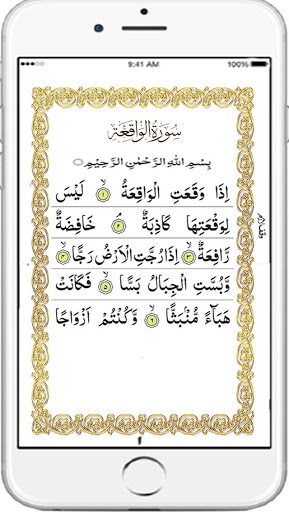 9:41 AM 100%
سُورَةُ الْوَاقِعَة
بِسْمِ اللهِ الرَّحْمٰنِ الرَّحِيْمِ
اِذَا وَقَعَتِ الْوَاقِعَةُ ۝١ لَيْسَ
لِوَقْعَتِهَا كَاذِبَةٌ ۝٢ خَافِضَةٌ
رَّافِعَةٌ ۝٣ اِذَا رُجَّتِ الْاَرْضُ رَجًّا ۝٤
وَّبُسَّتِ الْجِبَالُ بَسًّا ۝٥ فَكَانَتْ
هَبَآءً مُّنْبَثًّا ۝٦ وَّكُنْتُمْ اَزْوَاجًا